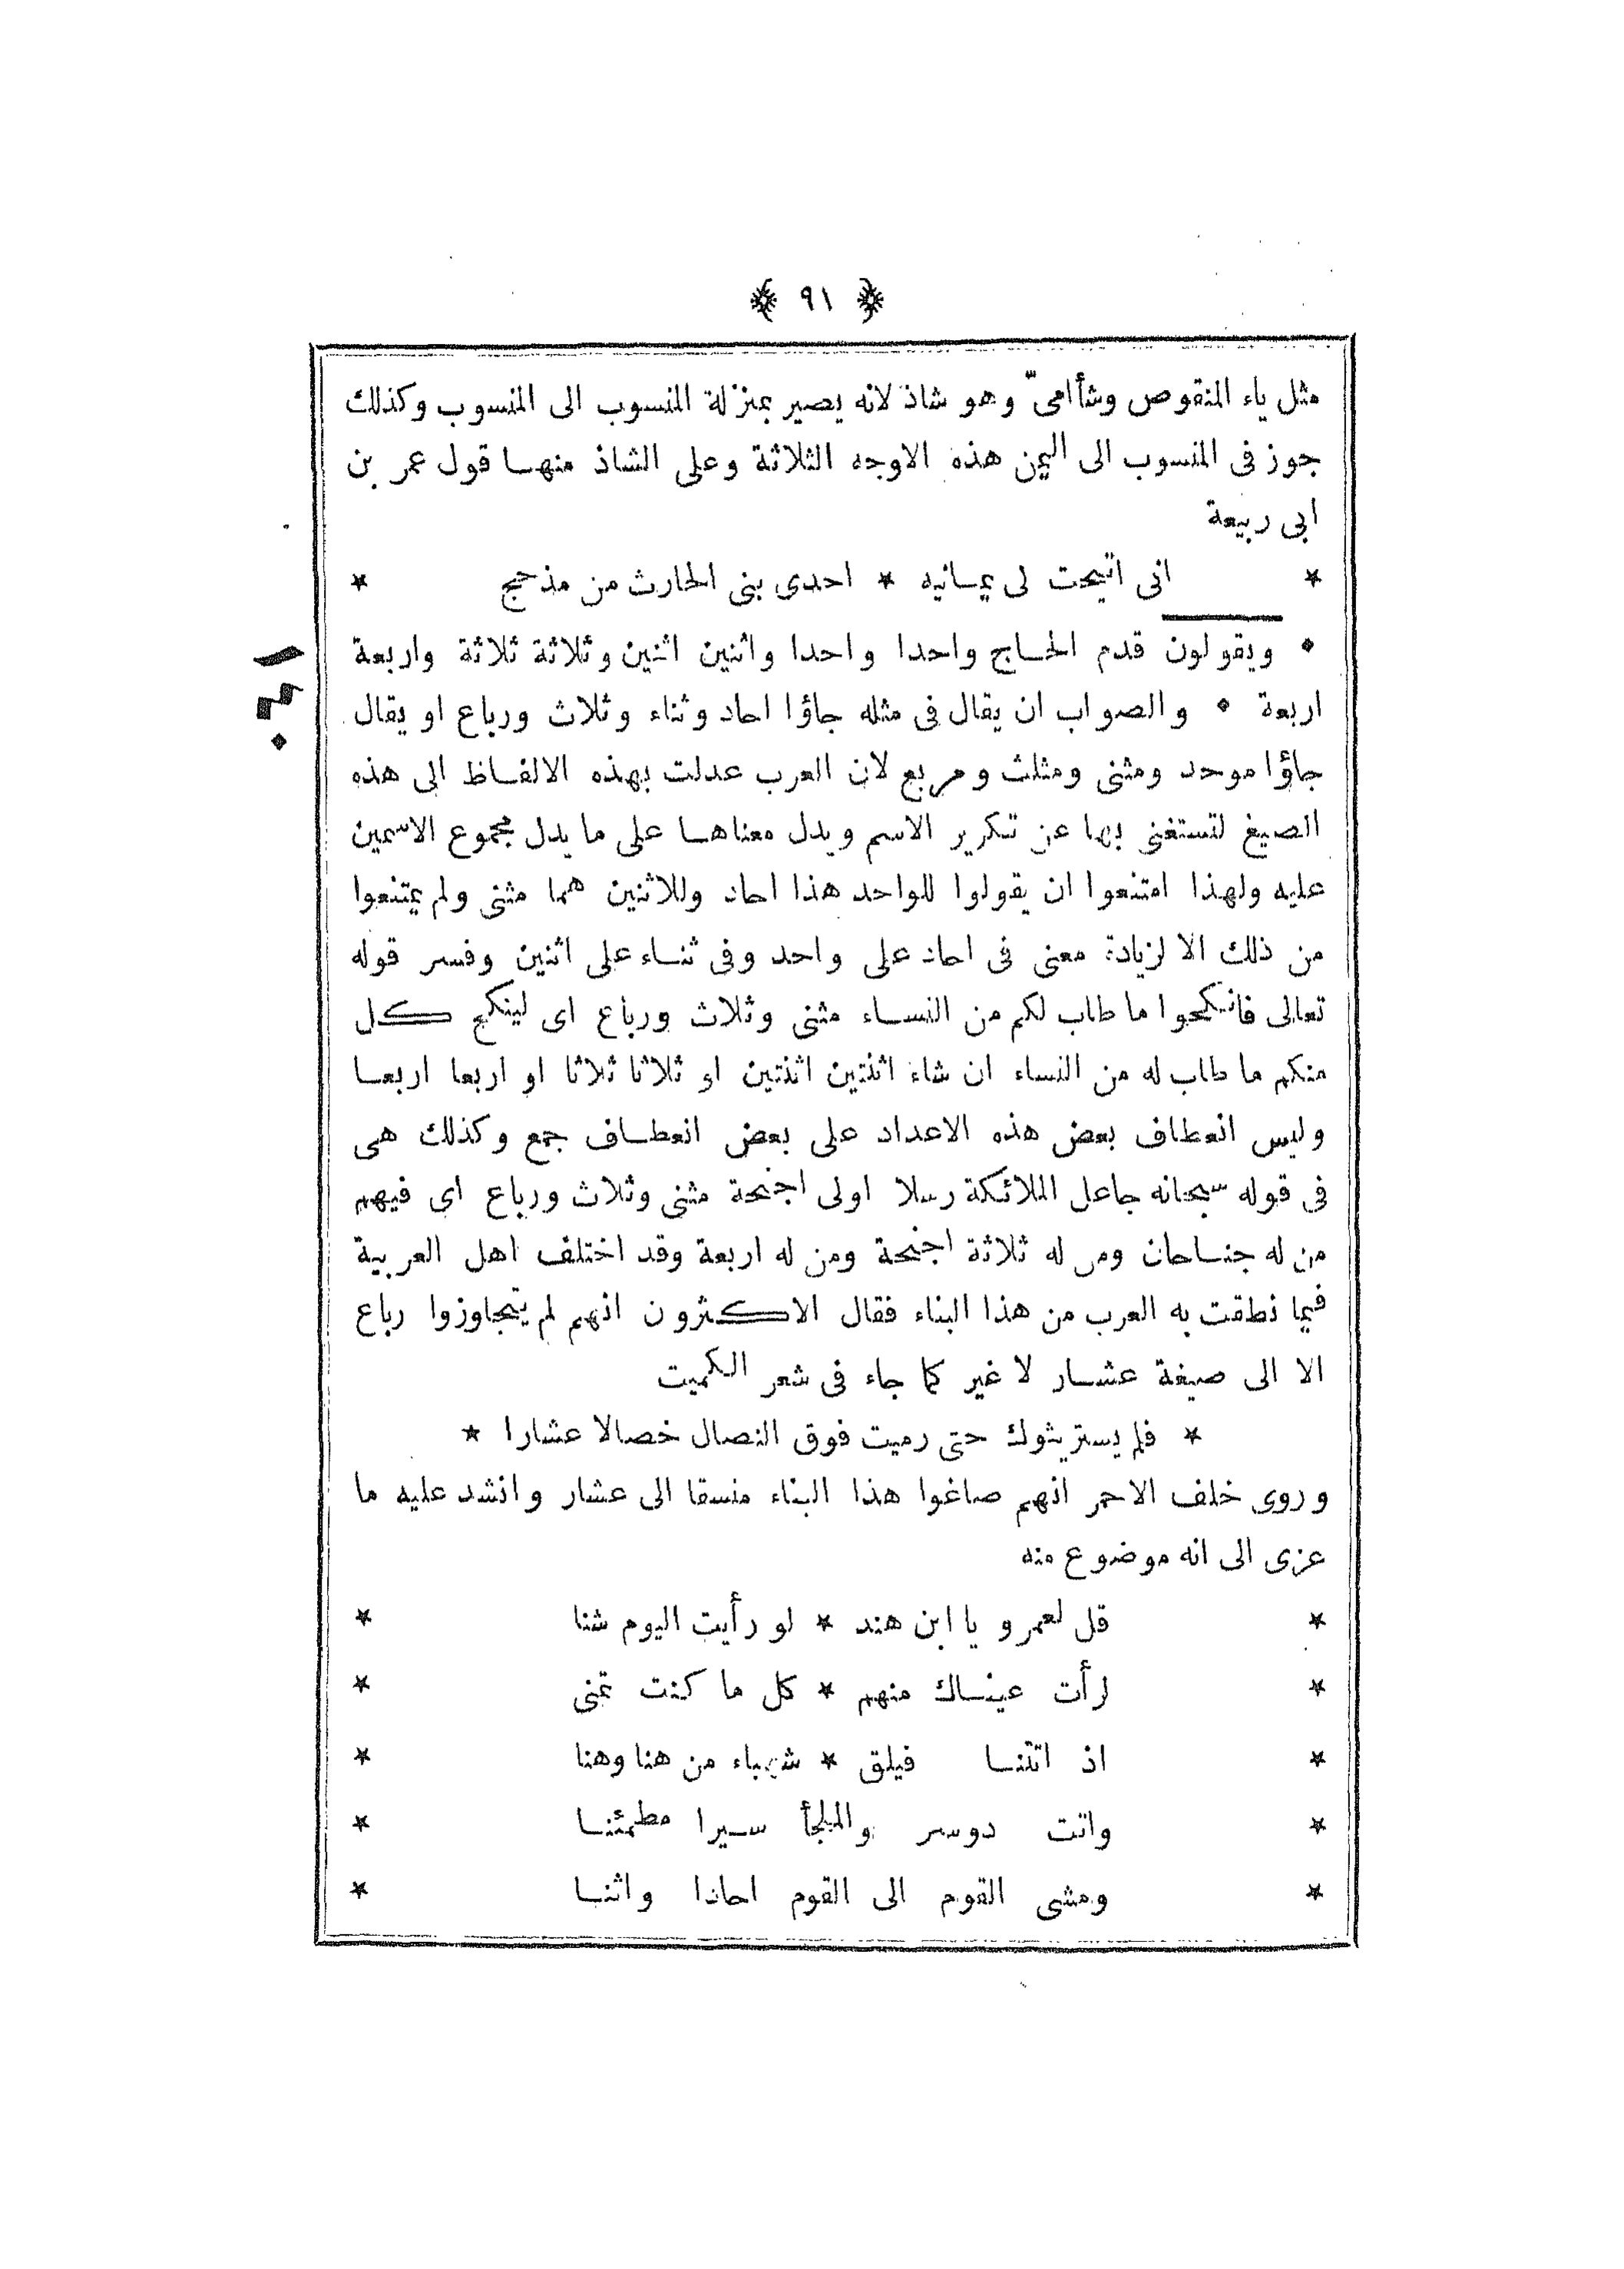 ﴿ ٩١ ﴾
مثل ياء المنقوص وشأامىّ وهو شاذ لانه يصير بمنزلة المنسوب الى المنسوب وكذلك
جوز فى المنسوب الى اليمن هذه الاوجه الثلاثة وعلى الشاذ منهـا قول عمر بن
ابى ربيعة
* انى اتيحت لى يمـانيه * احدى بنى الحارث من مذحج *
• ويقولون قدم الحـاج واحدا واحدا واثنين اثنين وثلاثة ثلاثة واربعة
اربعة • والصواب ان يقال فى مثله جاؤا احاد وثناء وثلاث ورباع او يقال
جاؤا موحد ومثنى ومثلث ومربع لان العرب عدلت بهذه الالفـاظ الى هذه
الصيغ لتستغنى بها عن تكرير الاسم ويدل معناهـا على ما يدل مجموع الاسمين
عليه ولهذا امتنعوا ان يقولوا للواحد هذا احاد وللاثنين هما مثنى ولم يمتنعوا
من ذلك الا لزيادة معنى فى احاد على واحد وفى ثنـاء على اثنين وفسر قوله
تعالى فانكحوا ما طاب لكم من النسـاء مثنى وثلاث ورباع اى لينكح كل
منكم ما طاب له من النساء ان شاء اثنتين اثنتين او ثلاثا ثلاثا او اربعا اربعـا
وليس انعطاف بعض هذه الاعداد على بعض انعطـاف جمع وكذلك هى
فى قوله سبحانه جاعل الملائكة رسلا اولى اجنحة مثنى وثلاث ورباع اى فيهم
من له جنـاحان ومن له ثلاثة اجنحة ومن له اربعة وقد اختلف اهل العربية
فيما نطقت به العرب من هذا البناء فقال الاكثرون انهم لم يتجاوزوا رباع
الا الى صيغة عشـار لا غير كما جاء فى شعر الكميت
* فلم يستريثوك حتى رميت فوق النصال خصالا عشارا *
وروى خلف الاحمر انهم صاغوا هذا البناء منسقا الى عشار وانشد عليه ما
عزى الى انه موضوع منه
* قل لعمرو يا ابن هند * لو رأيت اليوم شنا *
* لرأت عينـاك منهم * كل ما كنت تمنى *
* اذ اتتنـا فيلق * شهباء من هنا وهنا *
* واتت دوسر والملجأ سـيرا مطمئنـا *
* ومشى القوم الى القوم احادا واثنـا *